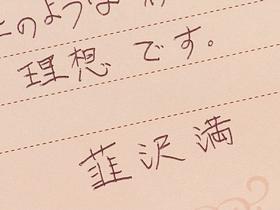 このような
理想です。
韮沢満